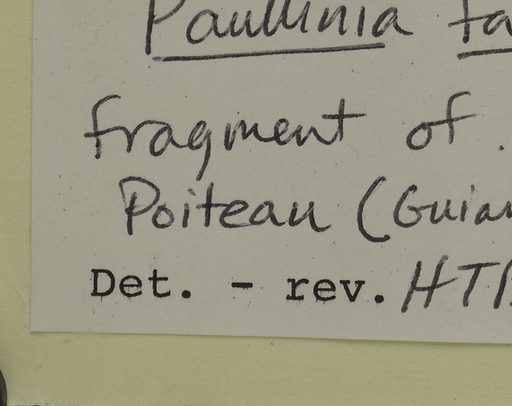 Paullinia
fragment of
Poiteau (Guian
Det. - rev. HTB